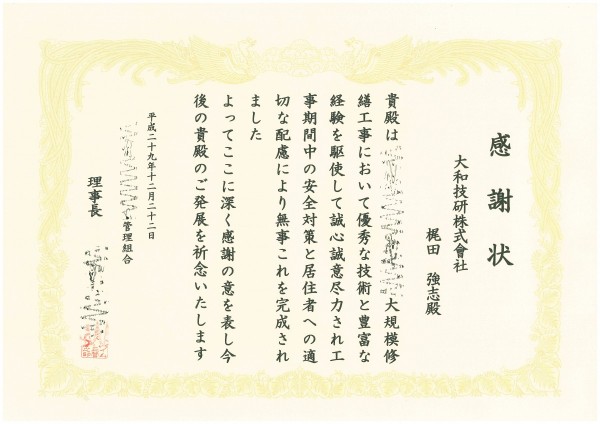 感謝状
大和技研株式會社
梶田 強志殿
貴殿は 大規模修
繕工事において優秀な技術と豊富な
経験を駆使して誠心誠意尽力され工
事期間中の安全対策と居住者への適
切な配慮により無事これを完成され
ました
よってここに深く感謝の意を表し今
後の貴殿のご発展を祈念いたします
平成二十九年十二月二十二日
管理組合
理事長